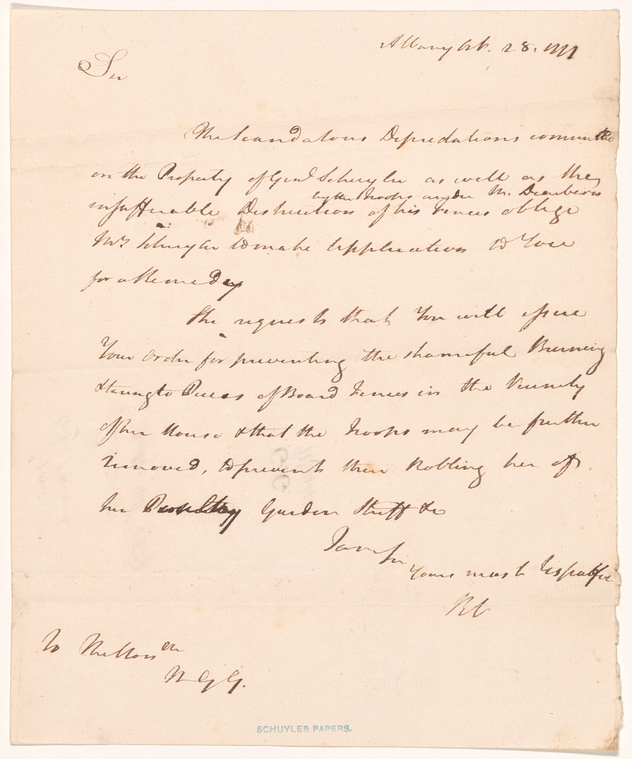 Albany Octb. 28. 1777
Sir
The Scandalous Depredations committed
on the Property of Genl Schuyler as well as the
by the Troops under Mr.
insufferable Distruction of his Fences oblige
Mrs Schuyler to make Application to You
for a Remedy
She requests that You will issue
Your Order for preventing the shameful Burning
& taring to Pieces of Board Fences in the Vicinity
of her House & that the Troops may be further
removed, to prevent their Robling her of
her Poultry Garden Stuff &c
I am Sir
Yours most
R V
To The Honble
H G G.
SCHUYLER PAPERS.